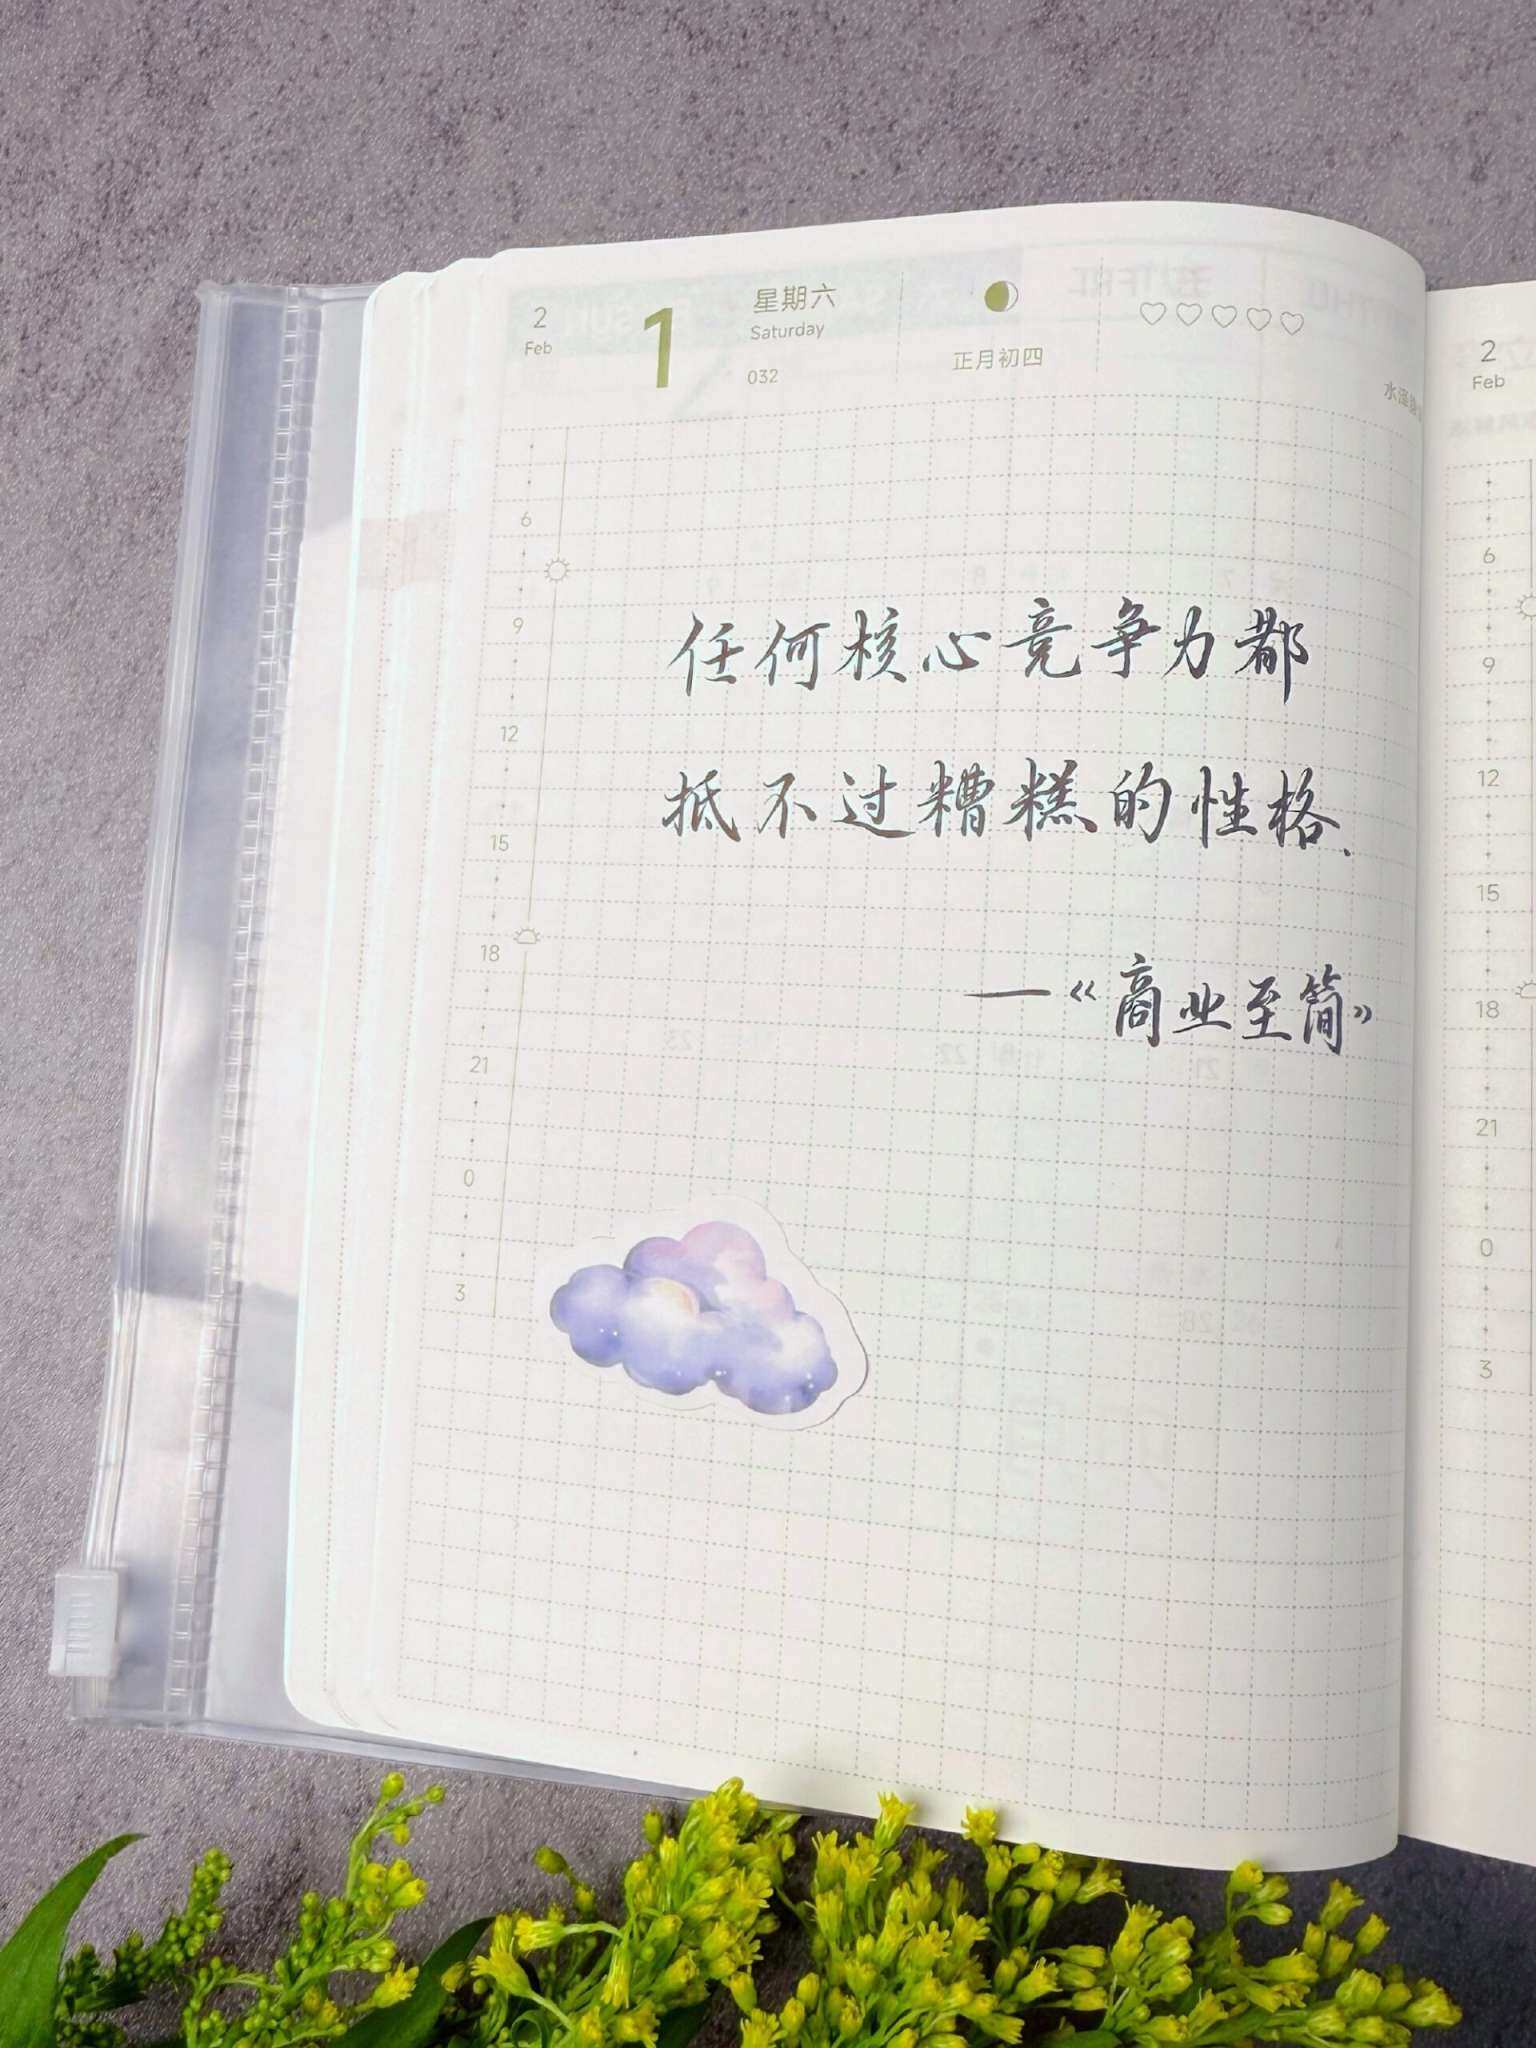 2
Feb
1
星期六
Saturday
032
正月初四
6
9
12
15
18
21
0
3
任何核心竞争力都
抵不过糟糕的性格、
—《商业至简》
2
Feb
6
9
12
15
18
21
0
3